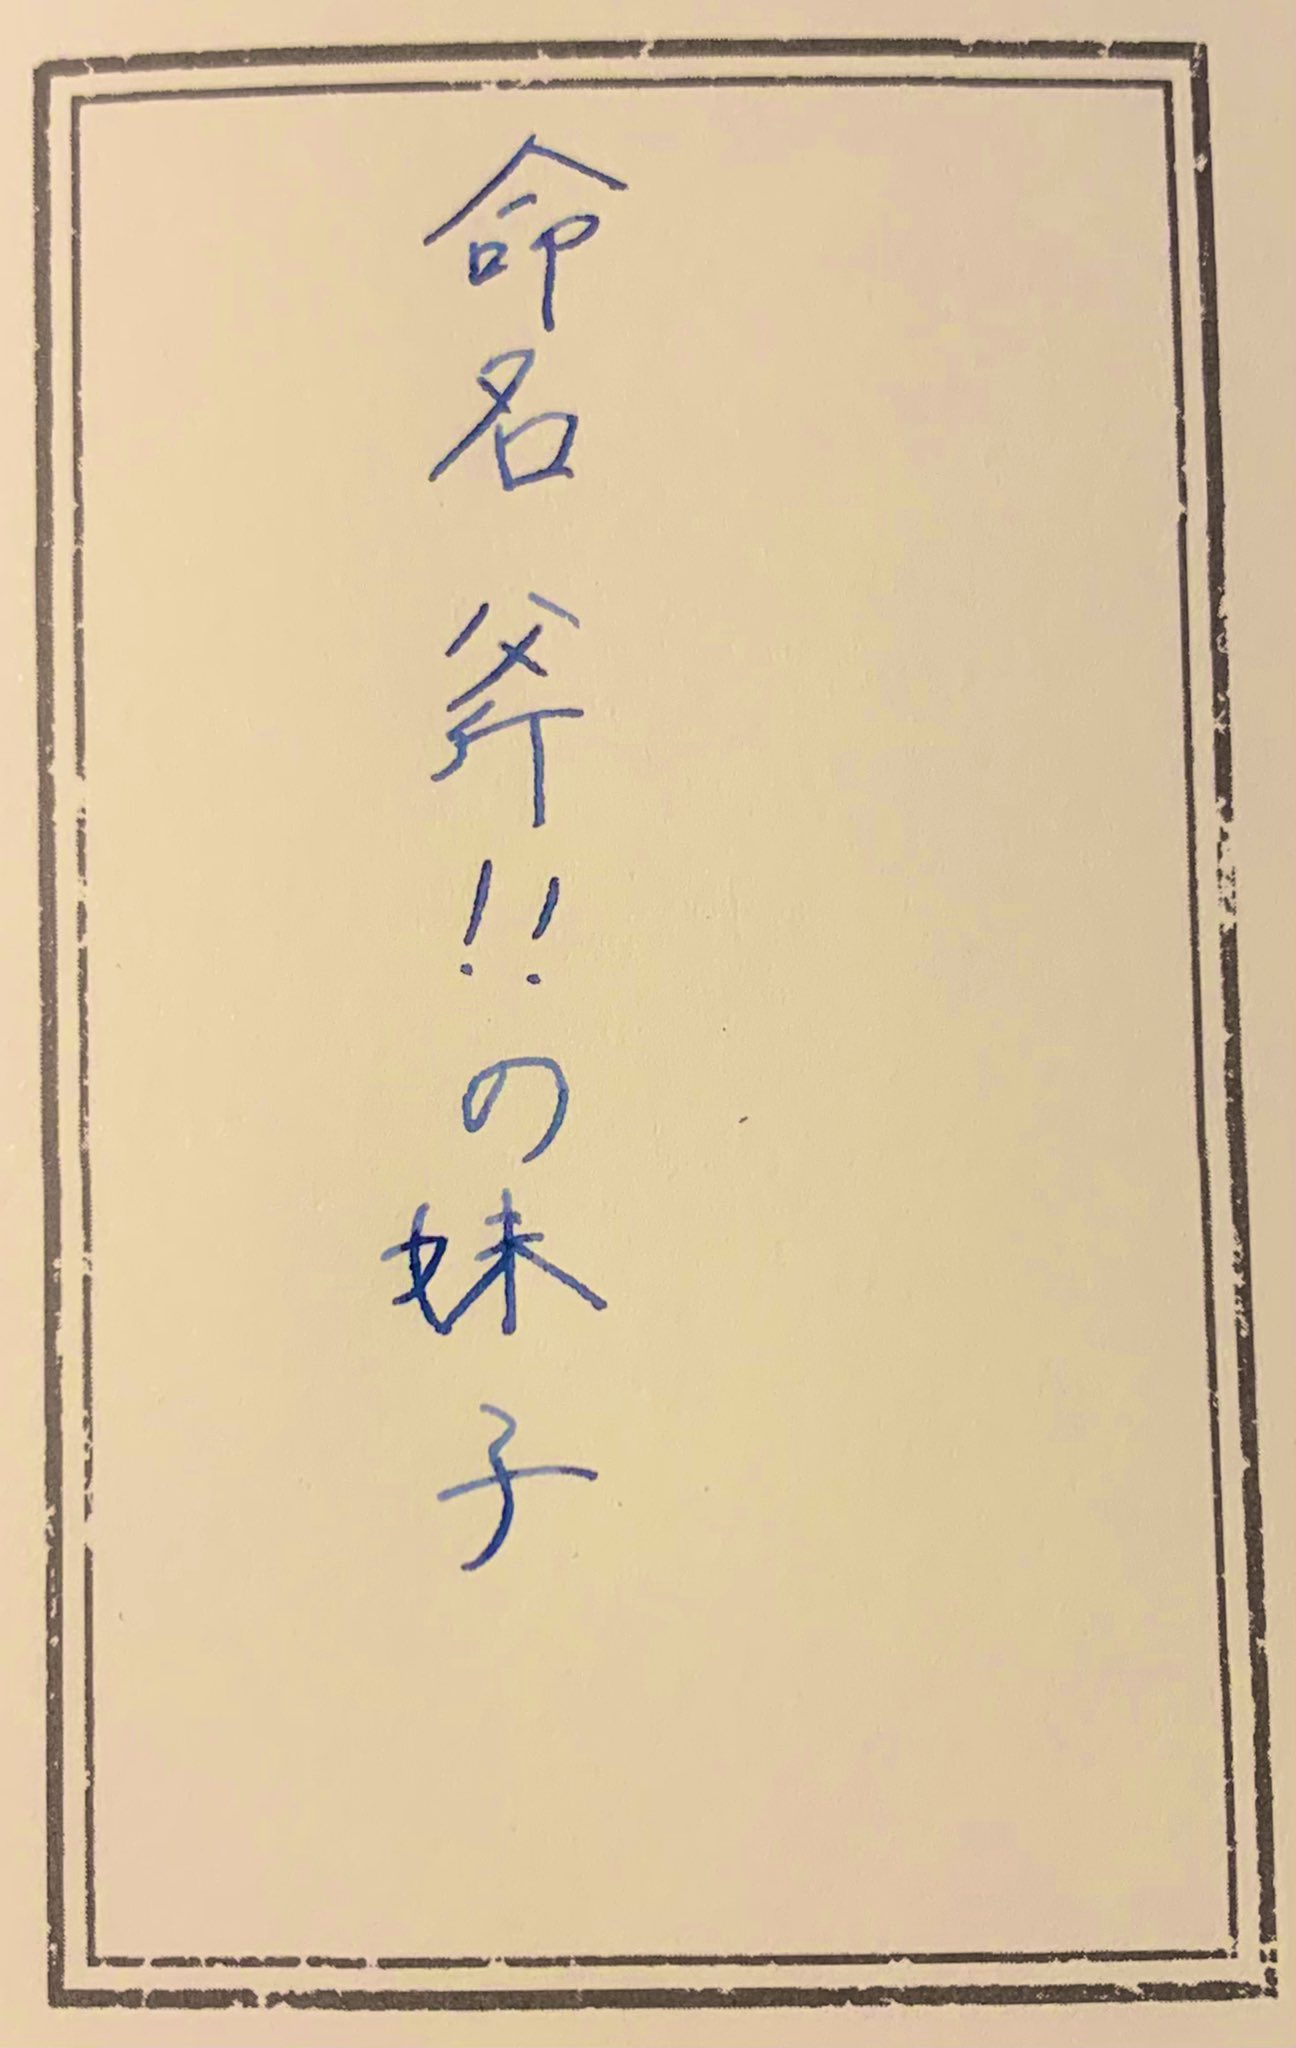 命名 斧!!の妹子